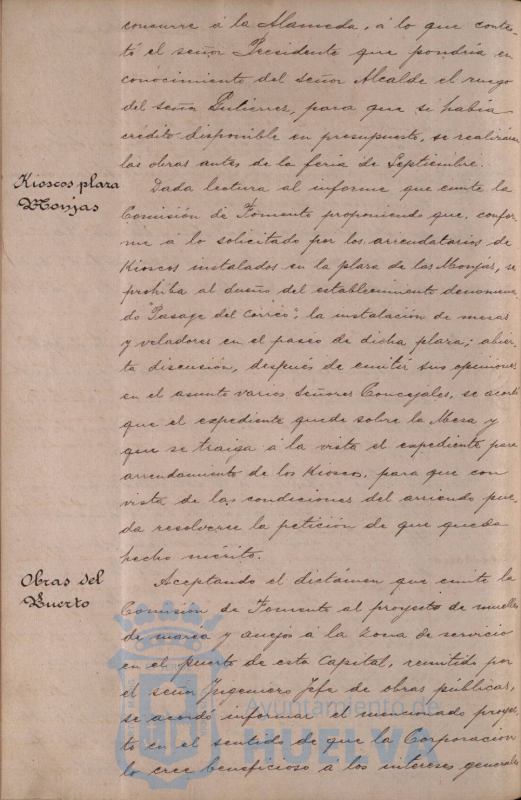 concurre á la Alameda, á lo que contes-
tó el señor Presidente que pondría en
conocimiento del señor Alcalde el ruego
del señor Gutierrez, para que si había
credito disponible en presupuesto, se realizaran
las obras antes de la feria de Septiembre.
Kioscos plaza
Monjas
Dada lectura al informe que emite la
Comisión de Fomento proponiendo que, confor
me á lo solicitado por los arrendatarios de
Kioscos instalados en la plaza de las Monjas, se
prohiba al dueño del establecimiento denomina
do "Pasage del Correo", la instalación de mesas
y veladores en el paseo de dicha plaza; abier
ta discusión, después de emitir sus opiniones
en el asunto varios Señores Concejales, se acordó
que el expediente quede sobre la Mesa y
que se traiga á la vista el expediente para
arrendamiento de los Kioscos, para que con
vista de las condiciones del arriendo pue-
da resolverse la petición de que queda
hecho mérito.
Obras del
Puerto
Aceptando el dictámen que emite la
Comisión de Fomento al proyecto de muelles
de marea y anejos á la zona de servicio
en el puerto de esta Capital, remitido por
el señor Ingeniero Jefe de obras públicas,
se acordó informar el mencionado proyec
to en el sentido de que la Corporación
lo cree beneficioso a los intereses generales
Ayuntamiento de
HUELVA